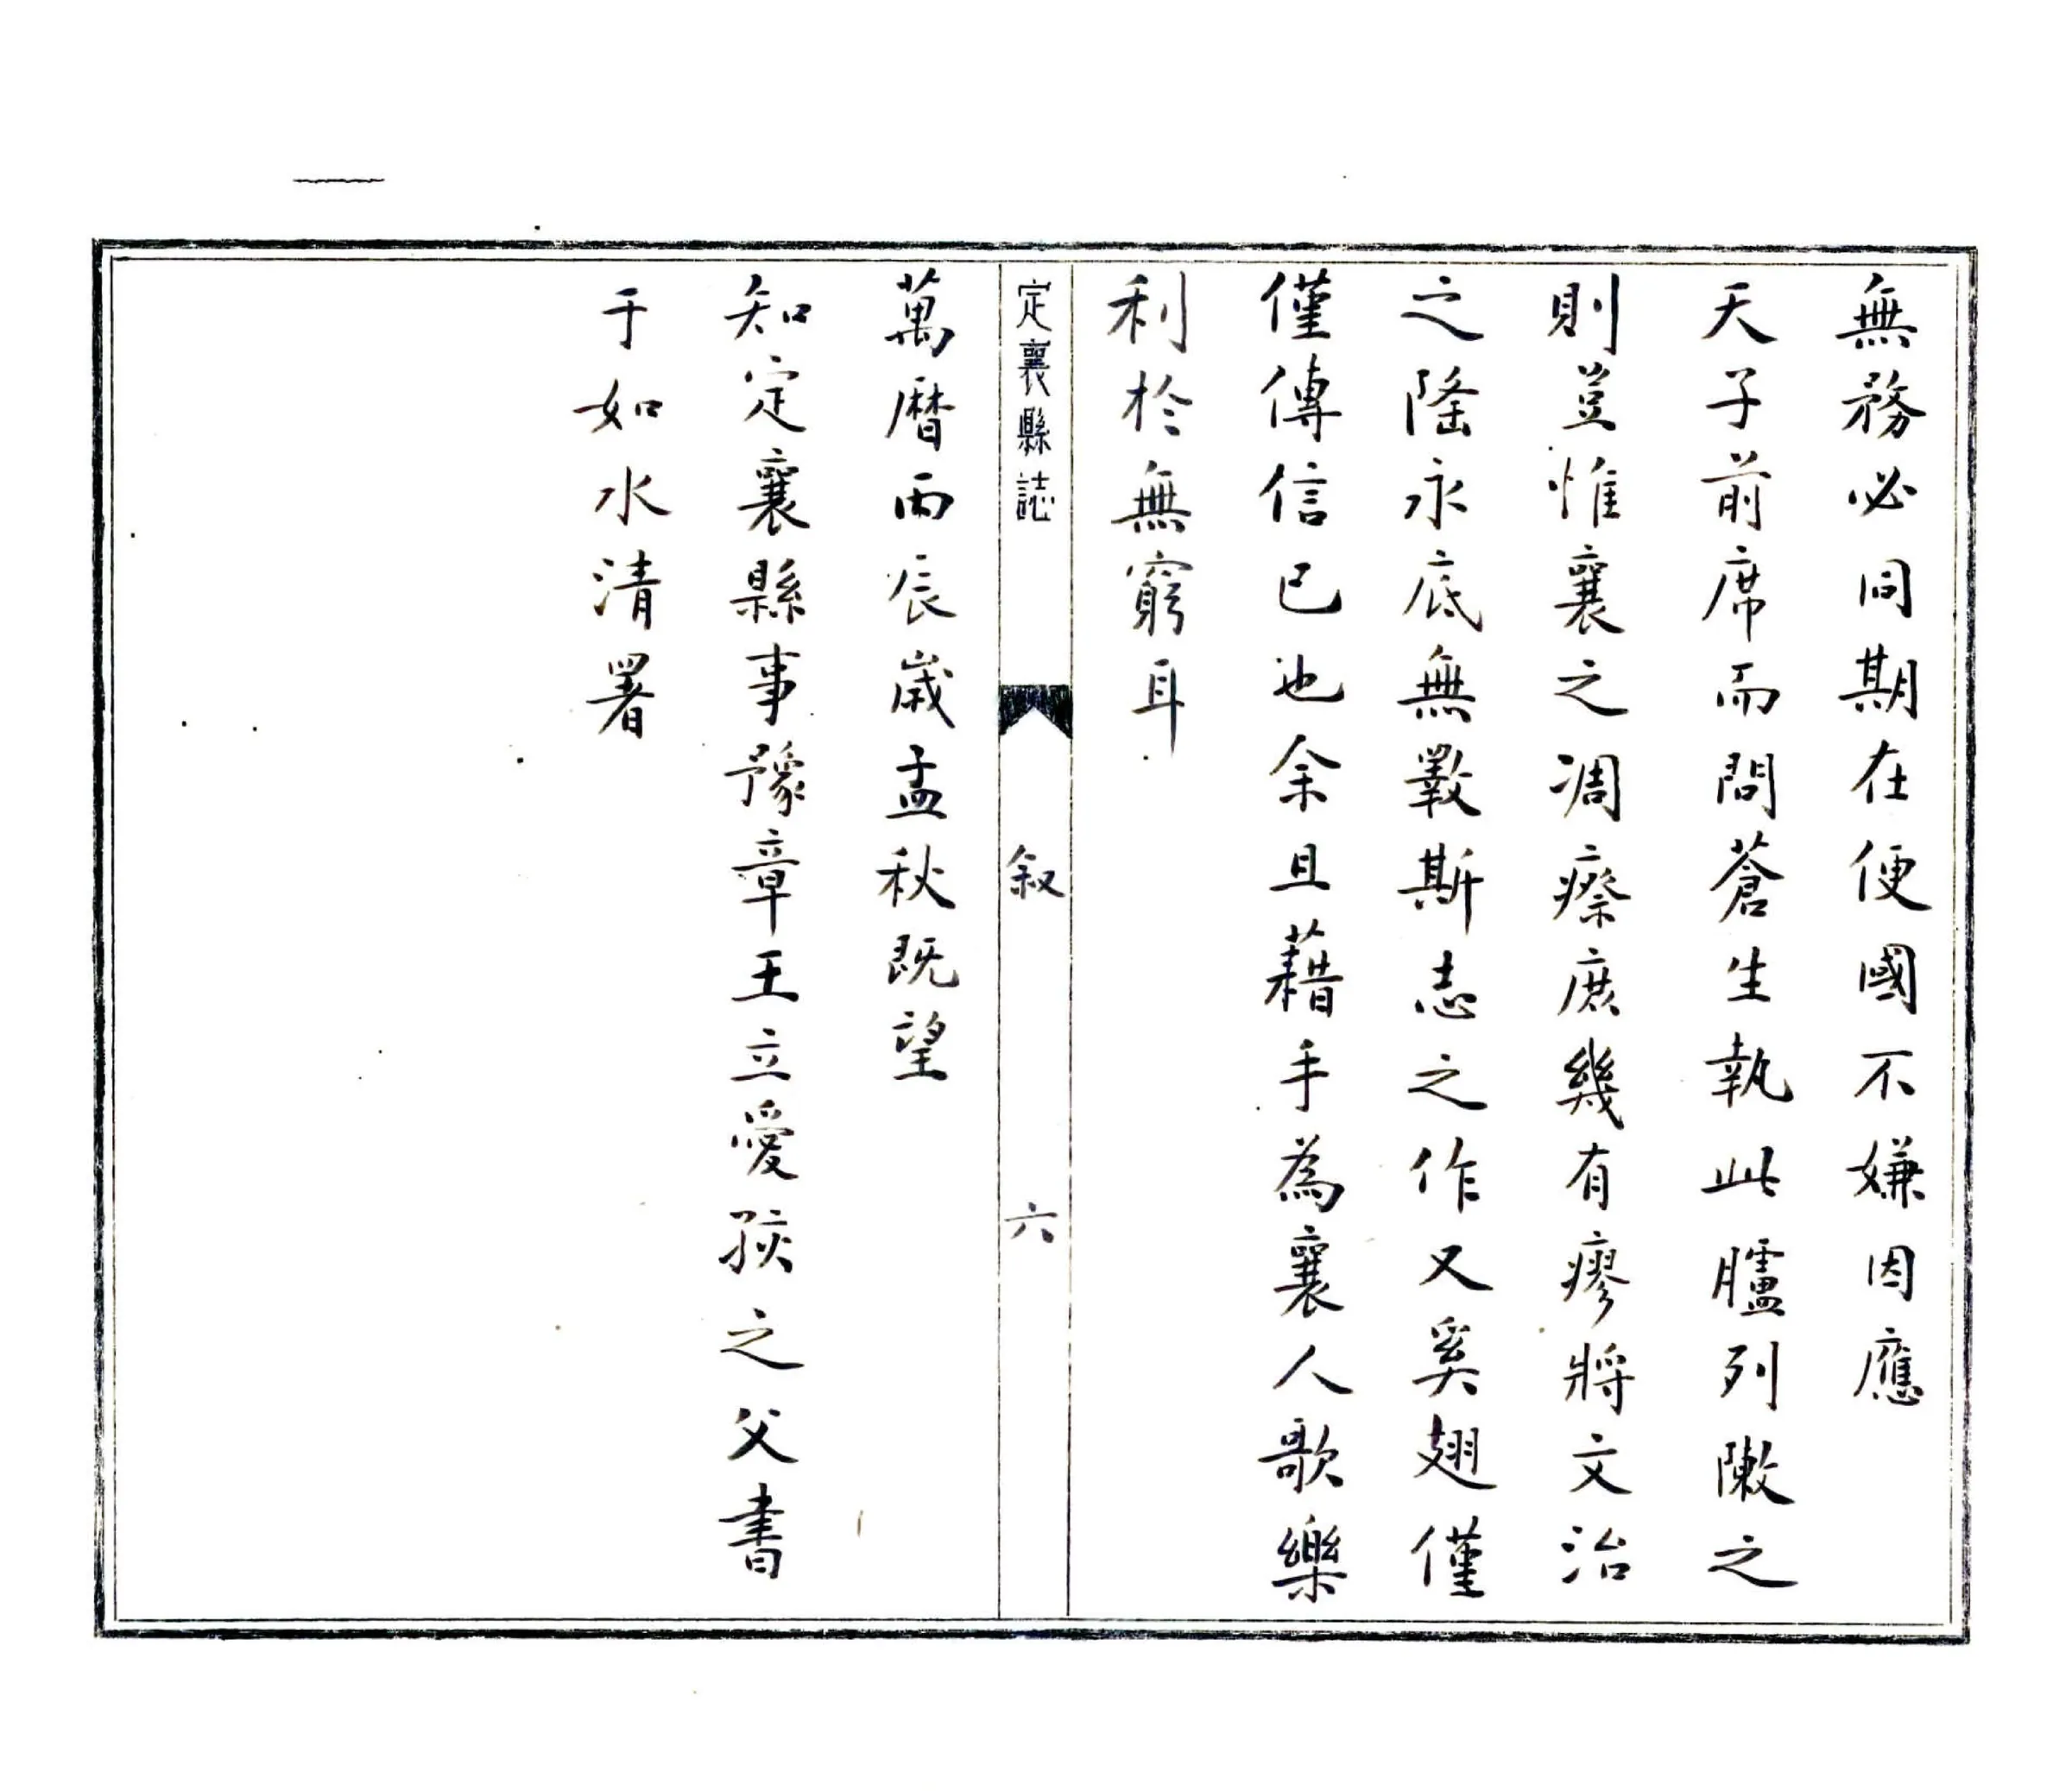 無務必同期在便國不嫌因應
天子前席而問蒼生執此臚列敶之
則豈惟襄之凋瘵庶幾有瘳將文治
之隆永底無斁斯志之作又奚翅僅
僅傳信已也余且藉手為襄人歌樂
利於無窮耳
定襄縣誌
叙
六
萬曆丙辰歲孟秋既望
知定襄縣事豫章王立愛之父書
于如水清署